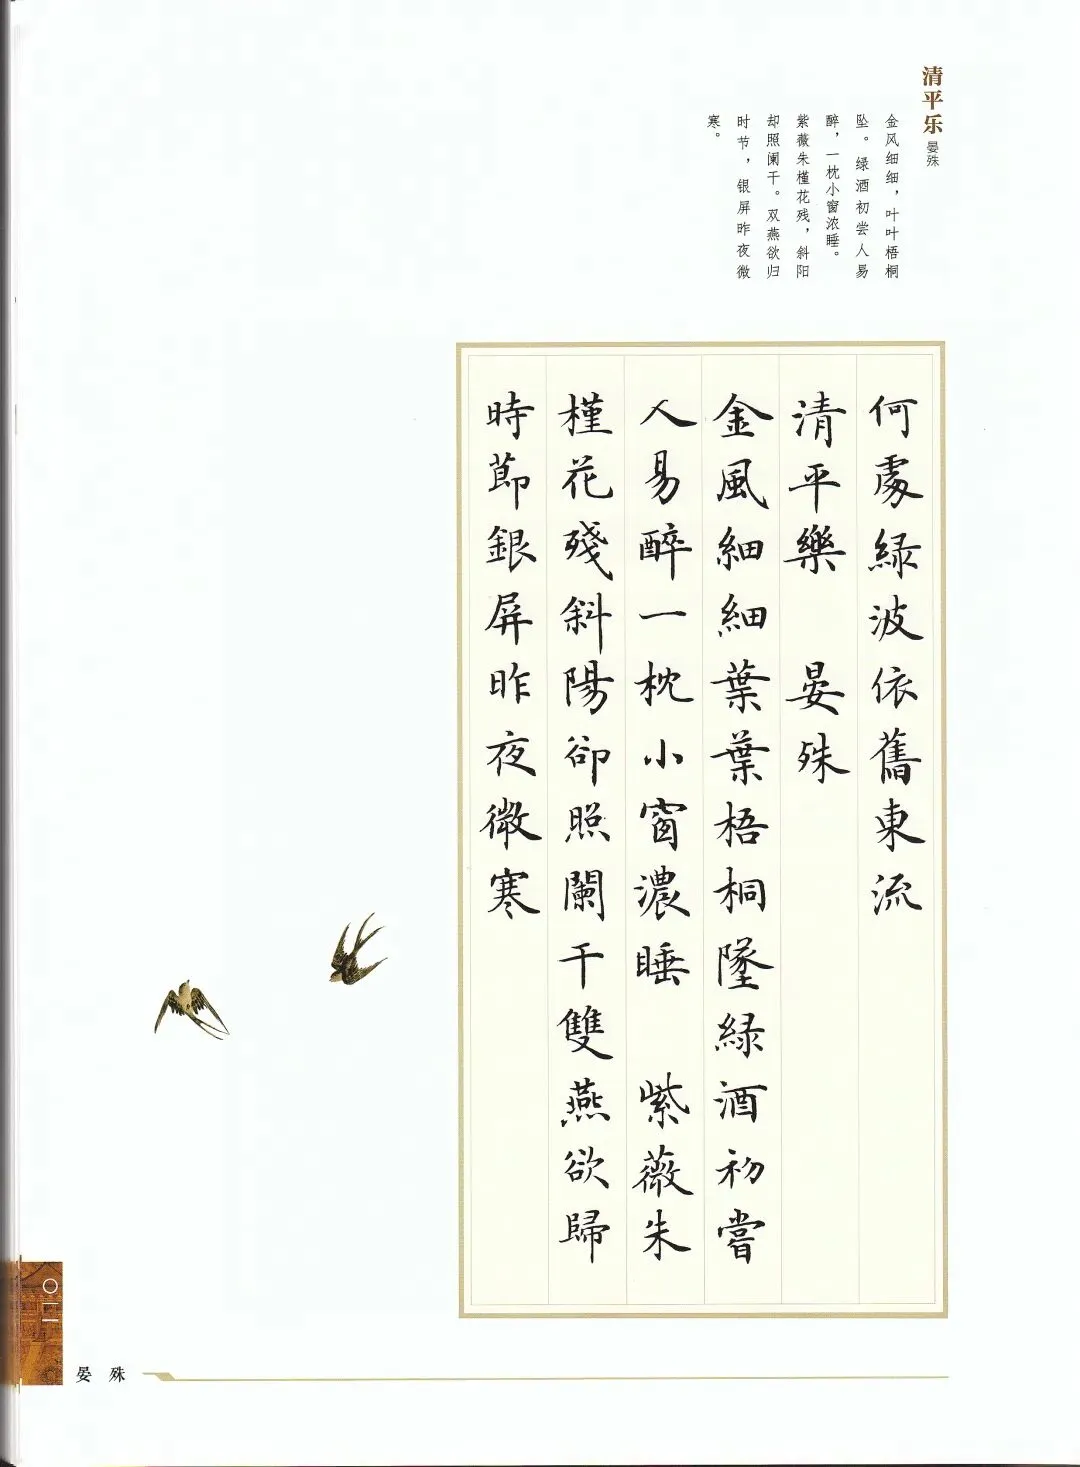 清平乐 晏殊
金风细细，叶叶梧桐
坠。绿酒初尝人易
醉，一枕小窗浓睡。
紫薇朱槿花残，斜阳
却照阑干。双燕欲归
时节，银屏昨夜微
寒。
何處緑波依舊東流
清平樂 晏殊
金風細細葉葉梧桐墜緑酒初嘗
人易醉一枕小窗濃睡 紫薇朱
槿花殘斜陽卻照闌干雙燕欲歸
時節銀屏昨夜微寒
〇一一
晏殊